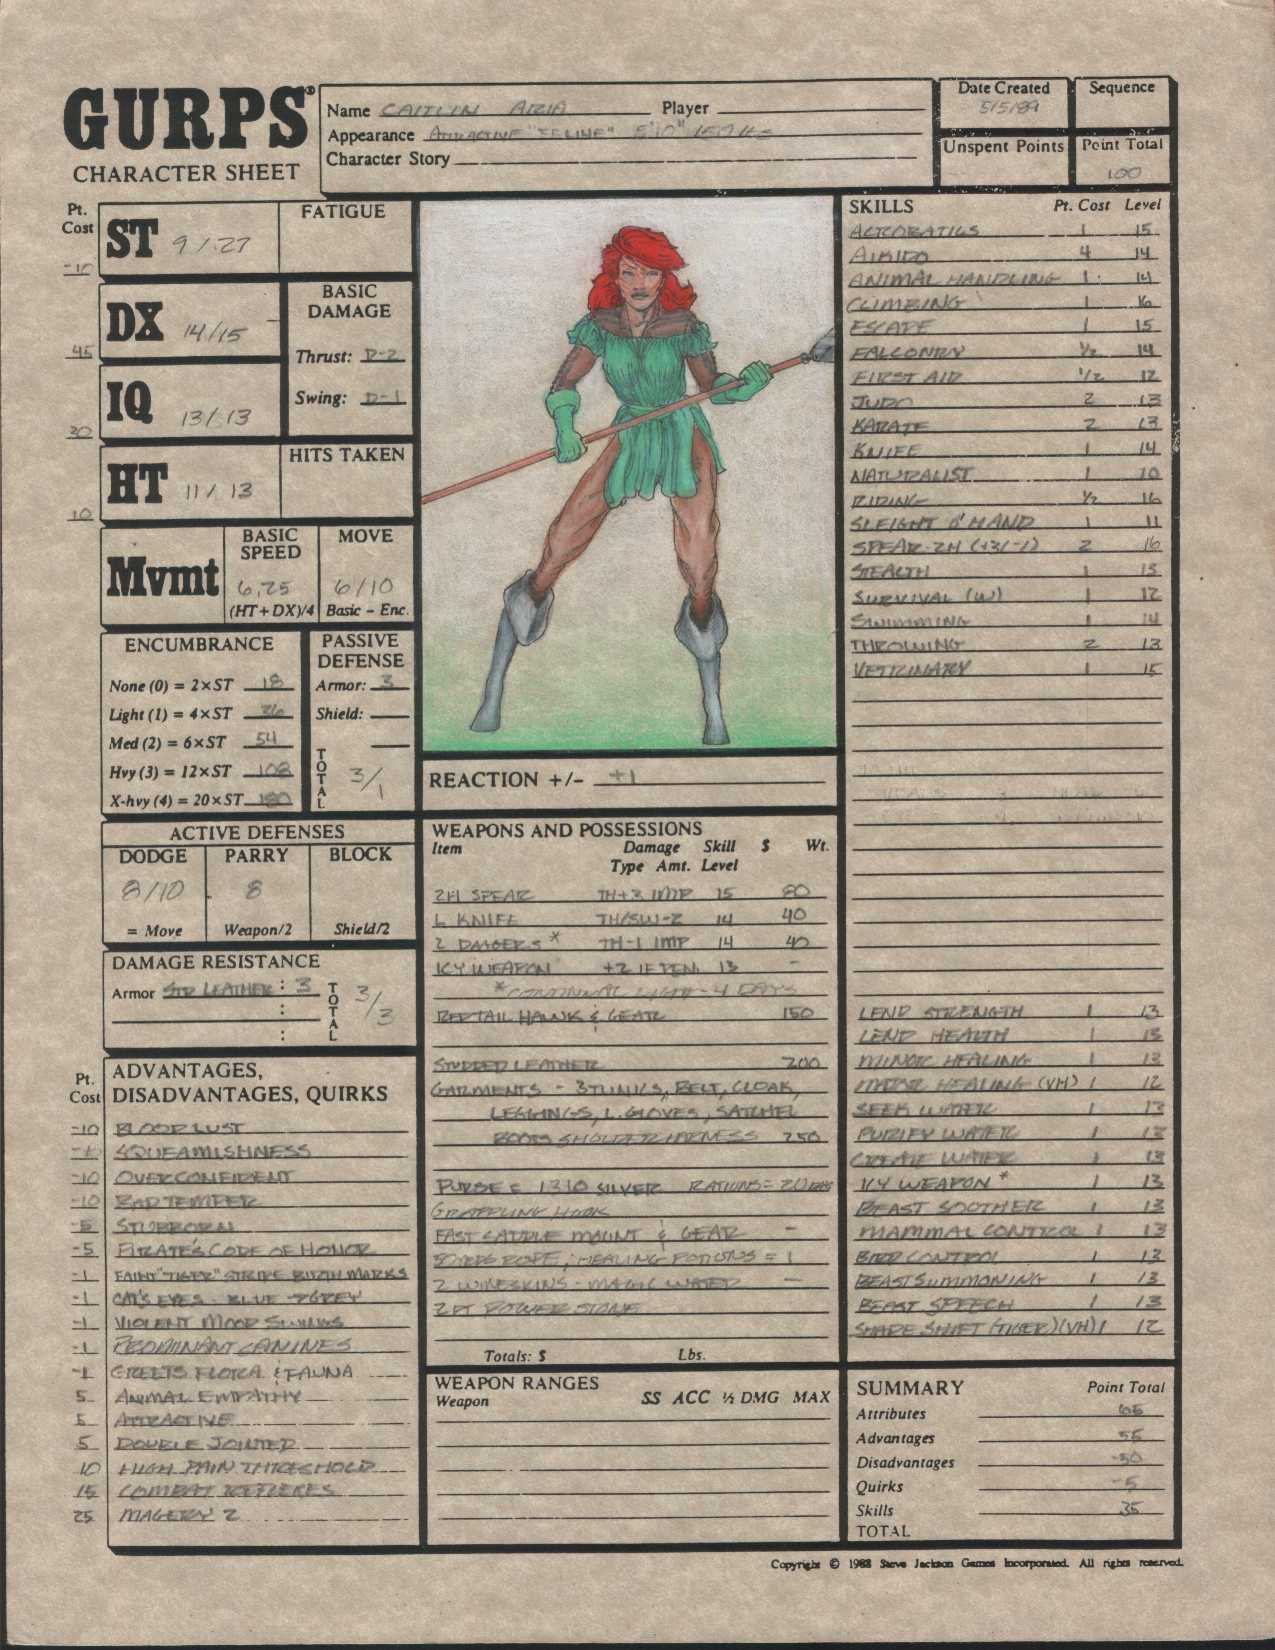 GURPS®
CHARACTER SHEET
Name CAITLIN ARIA Player
Appearance ATTRACTIVE "FELINE" 5'10"
Character Story
Date Created
5/5/89
Sequence
Unspent Points
Point Total
100
Pt. Cost
-10 ST 9/27
FATIGUE
45 DX 14/15
BASIC DAMAGE
Thrust: D-2
Swing: D-1
30 IQ 13/13
10 HT 11/13
HITS TAKEN
Mvmt
BASIC SPEED
6.25
(HT + DX)/4
MOVE
6/10
Basic – Enc.
ENCUMBRANCE
None (0) = 2×ST 18
Light (1) = 4×ST 36
Med (2) = 6×ST 54
Hvy (3) = 12×ST 108
X-hvy (4) = 20×ST 180
PASSIVE DEFENSE
Armor: 3
Shield:
TOTAL 3/1
ACTIVE DEFENSES
DODGE PARRY BLOCK
8/10 8
= Move Weapon/2 Shield/2
DAMAGE RESISTANCE
Armor STD LEATHER : 3
:
:
TOTAL 3/3
Pt. Cost
ADVANTAGES,
DISADVANTAGES, QUIRKS
-10 BLOOD LUST
SQUEAMISHNESS
-10 OVERCONFIDENT
-10 BAD TEMPER
-5 STUBBORN
-5 PIRATE'S CODE OF HONOR
-1 FAINT "TIGER" STRIPE BIRTH MARKS
-1 CAT'S EYES - BLUE GREY
-1 VIOLENT MOOD SWINGS
-1 PROMINANT CANINES
-1 GREETS FLORA & FAUNA
5 ANIMAL EMPATHY
5 ATTRACTIVE
5 DOUBLE JOINTED
10 HIGH PAIN THRESHOLD
15 COMBAT REFLEXES
25 MAGERY 2
REACTION +/- +1
WEAPONS AND POSSESSIONS
Item Damage Skill $ Wt.
Type Amt. Level
2H SPEAR TH+3 IMP 15 80
L KNIFE TH/SW-2 14 40
2 DAGGERS * TH-1 IMP 14 40
ICY WEAPON +2 IF PEN. 13 -
*CONTINUAL LIGHT - 4 DAYS
REDTAIL HAWK & GEAR 150
STUDDED LEATHER 200
GARMENTS - 3 TUNICS, BELT, CLOAK,
LEGGINGS, L. GLOVES, SATCHEL
BOOTS SHOULDER HARNESS 250
PURSE = 1310 SILVER RATIONS = 20 DAYS
GRAPPLING HOOK
FAST SADDLE MOUNT & GEAR -
ROPE; HEALING POTIONS = 1
2 WINESKINS - MAGIC WATER -
2 PT POWER STONE
Totals: $ Lbs.
WEAPON RANGES
Weapon SS ACC ½ DMG MAX
SKILLS Pt. Cost Level
ACROBATICS 1 15
AIKIDO 4 14
ANIMAL HANDLING 1 14
CLIMBING 1 16
ESCAPE 1 15
FALCONRY ½ 14
FIRST AID ½ 12
JUDO 2 13
KARATE 2 13
KNIFE 1 14
NATURALIST 1 10
RIDING ½ 16
SLEIGHT O' HAND 1 11
SPEAR-2H (+3/-1) 2 16
STEALTH 1 15
SURVIVAL (W) 1 12
SWIMMING 1 14
THROWING 2 13
VETRINARY 1 15
LEND STRENGTH 1 13
LEND HEALTH 1 13
MINOR HEALING 1 13
MAJOR HEALING (VH) 1 12
SEEK WATER 1 13
PURIFY WATER 1 13
CREATE WATER 1 13
ICY WEAPON * 1 13
BEAST SOOTHER 1 13
MAMMAL CONTROL 1 13
BIRD CONTROL 1 13
BEAST SUMMONING 1 13
BEAST SPEECH 1 13
SHAPE SHIFT (TIGER)(VH) 1 12
SUMMARY Point Total
Attributes 65
Advantages 55
Disadvantages -50
Quirks -5
Skills 35
TOTAL
Copyright © 1988 Steve Jackson Games Incorporated. All rights reserved.